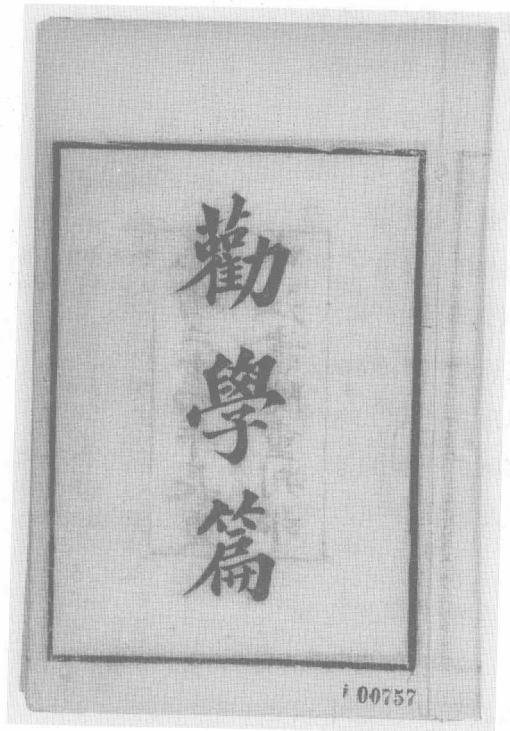 勸學篇
00757